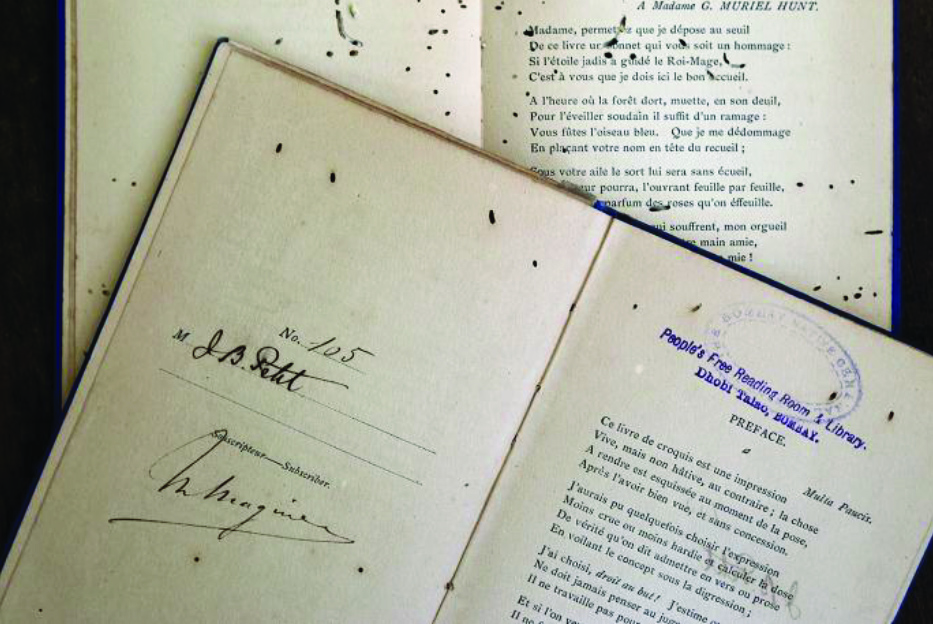 A Madame G. MURIEL HUNT.
Madame, permettez que je dépose au seuil
De ce livre un sonnet qui vous soit un hommage :
Si l'étoile jadis a guidé le Roi-Mage,
C'est à vous que je dois ici le bon accueil.
A l'heure où la forêt dort, muette, en son deuil,
Pour l'éveiller soudain il suffit d'un ramage :
Vous fûtes l'oiseau bleu. Que je me dédommage
En plaçant votre nom en tête du recueil ;
Sous votre aile le sort lui sera sans écueil,
pourra, l'ouvrant feuille par feuille,
parfum des roses qu'on éffeuille.
souffrent, mon orgueil
main amie,
mie !
No. 105
M J. B. Petit
Souscripteur—Subscriber.
BOMBAY NATIVE GENERAL
People's Free Reading Room & Library.
Dhobi Talao, BOMBAY.
PREFACE.
Multa Paucis.
Ce livre de croquis est une impression
Vive, mais non hâtive, au contraire ; la chose
A rendre est esquissée au moment de la pose,
Après l'avoir bien vue, et sans concession.
J'aurais pu quelquefois choisir l'expression
Moins crue ou moins hardie et calculer la dose
De vérité qu'on dit admettre en vers ou prose
En voilant le concept sous la digression ;
J'ai choisi, droit au but ! J'estime
Ne doit jamais penser au
Il ne travaille pas pour
Et si l'on
Il